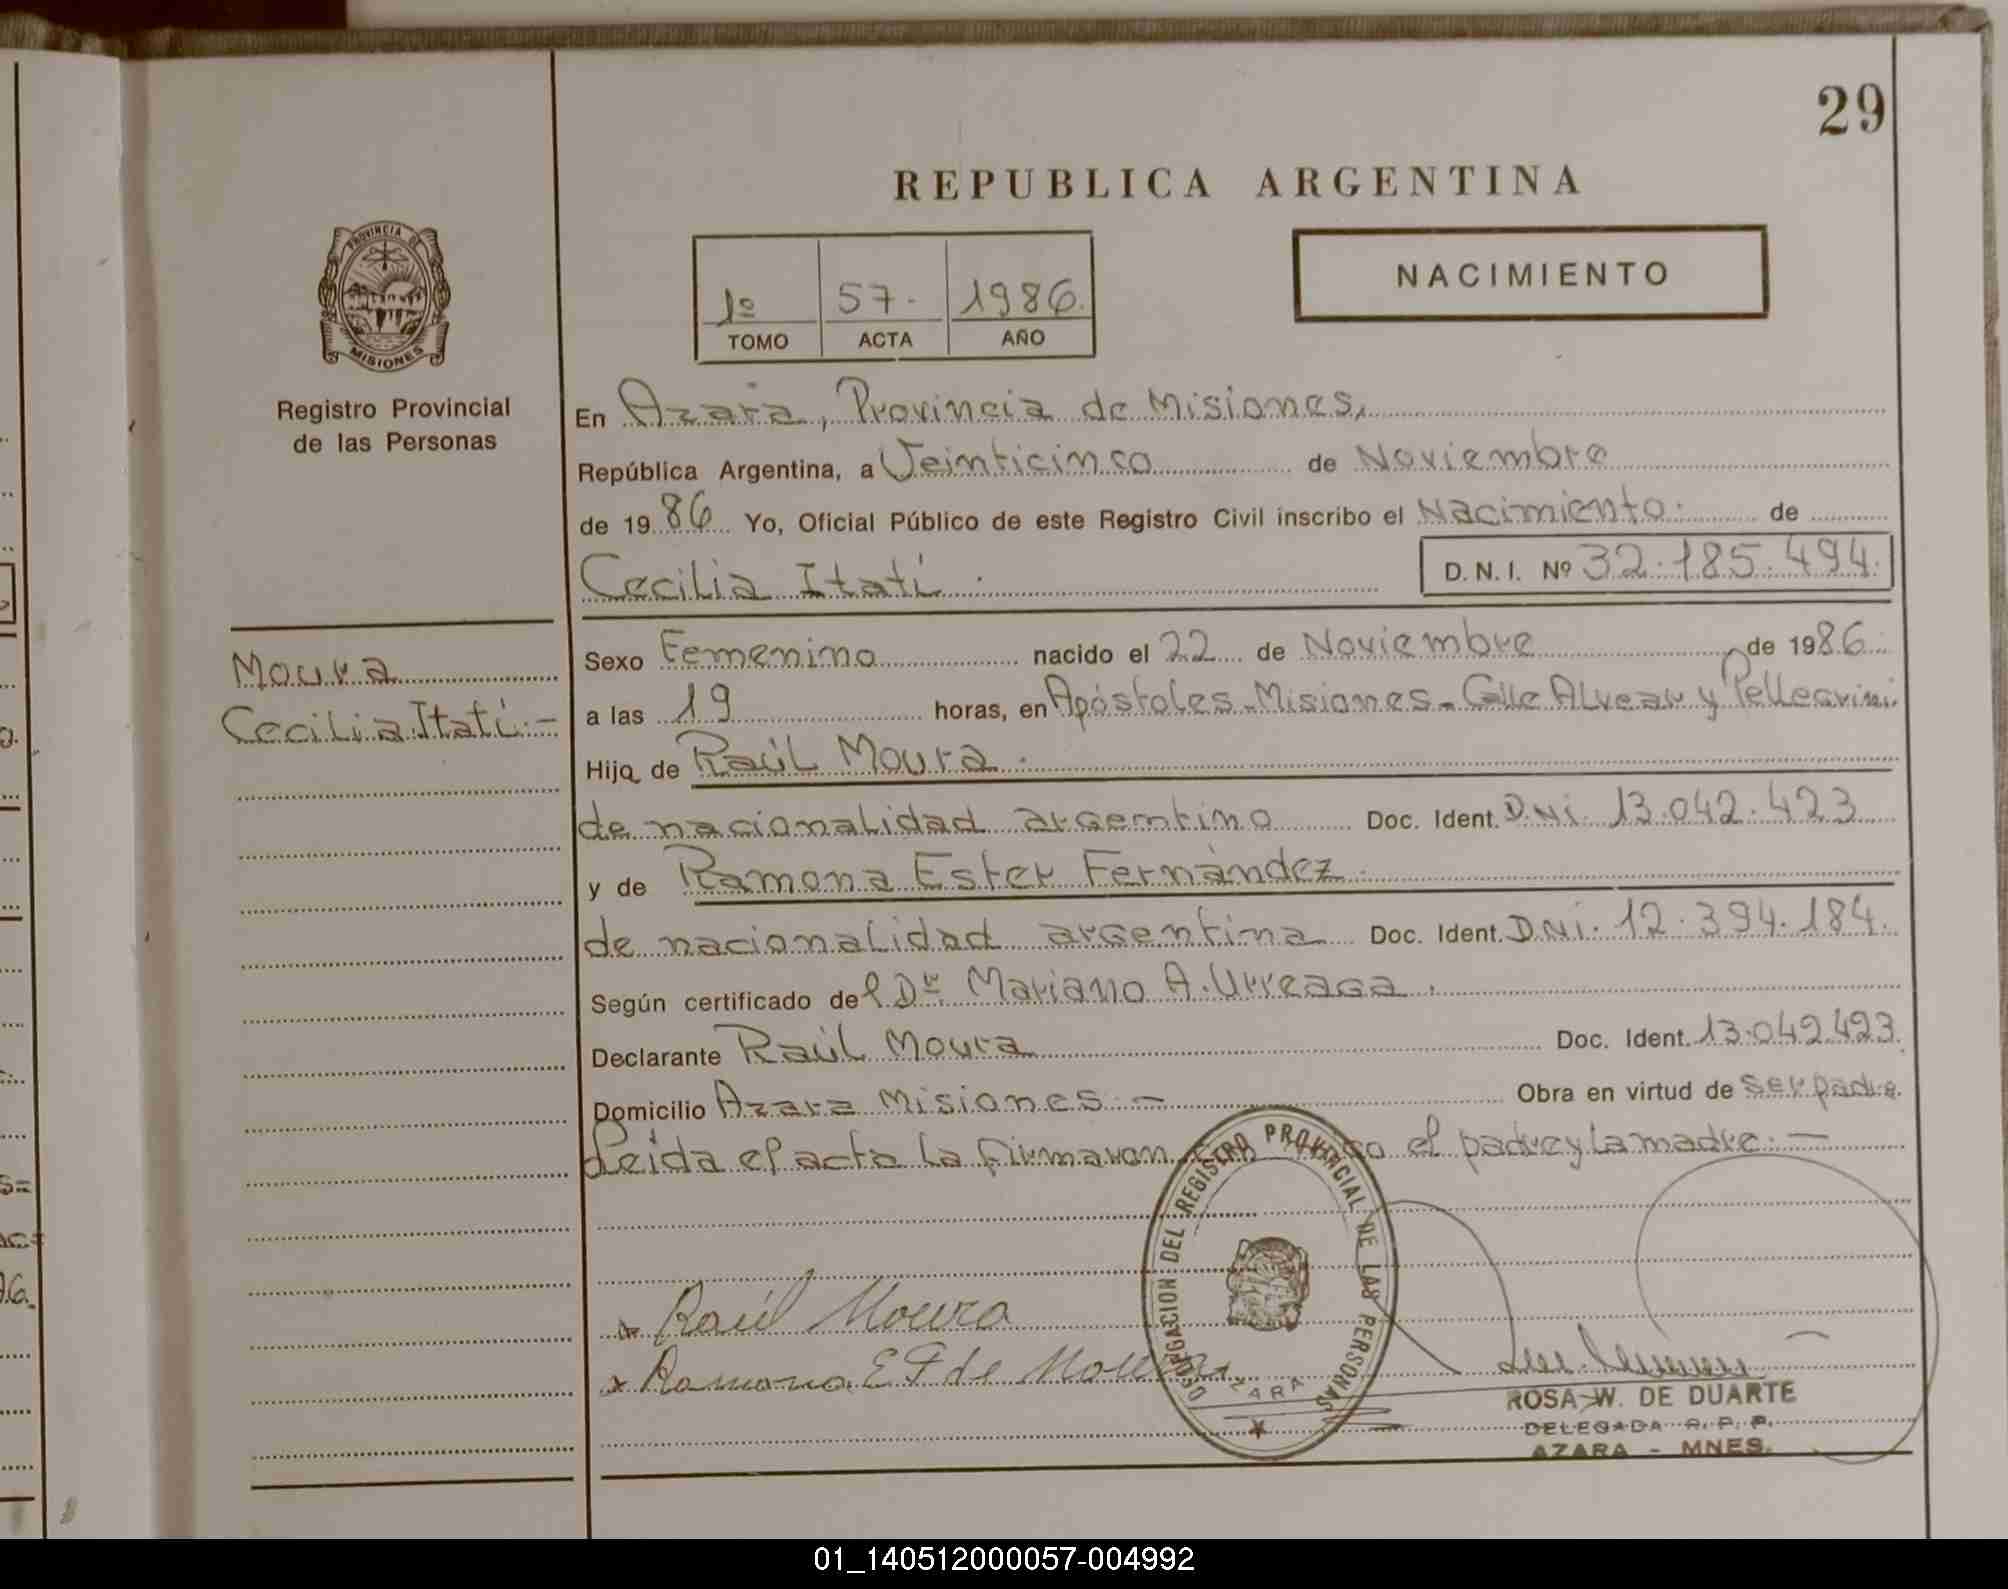 29
REPUBLICA ARGENTINA
PROVINCIA DE
MISIONES
Registro Provincial
de las Personas
1º 57. 1986.
TOMO ACTA AÑO
NACIMIENTO
En Azara, Provincia de Misiones,
República Argentina, a Veinticinco de Noviembre
de 1986 Yo, Oficial Público de este Registro Civil inscribo el Nacimiento. de
Cecilia Itatí. D.N.I. Nº 32.185.494.
Moura
Cecilia Itatí.-
Sexo Femenino nacido el 22 de Noviembre de 1986.
a las 19 horas, en Apóstoles-Misiones-Calle Alvear y Pellegrini.
Hija de Raúl Moura.
de nacionalidad argentino Doc. Ident. DNi. 13.042.423
y de Ramona Ester Fernández.
de nacionalidad argentina Doc. Ident. DNi. 12.394.184.
Según certificado del Dr. Mariano A. Urreaga.
Declarante Raúl Moura Doc. Ident. 13.042.423.
Domicilio Azara Misiones.- Obra en virtud de ser padre.
Leída el acta la firmaron el padre y la madre.-
DELEGACION DEL REGISTRO PROVINCIAL DE LAS PERSONAS
AZARA
x Raúl Moura
x Ramona E F de Moura
ROSA W. DE DUARTE
DELEGADA R. P. P.
AZARA - MNES.
01_140512000057-004992